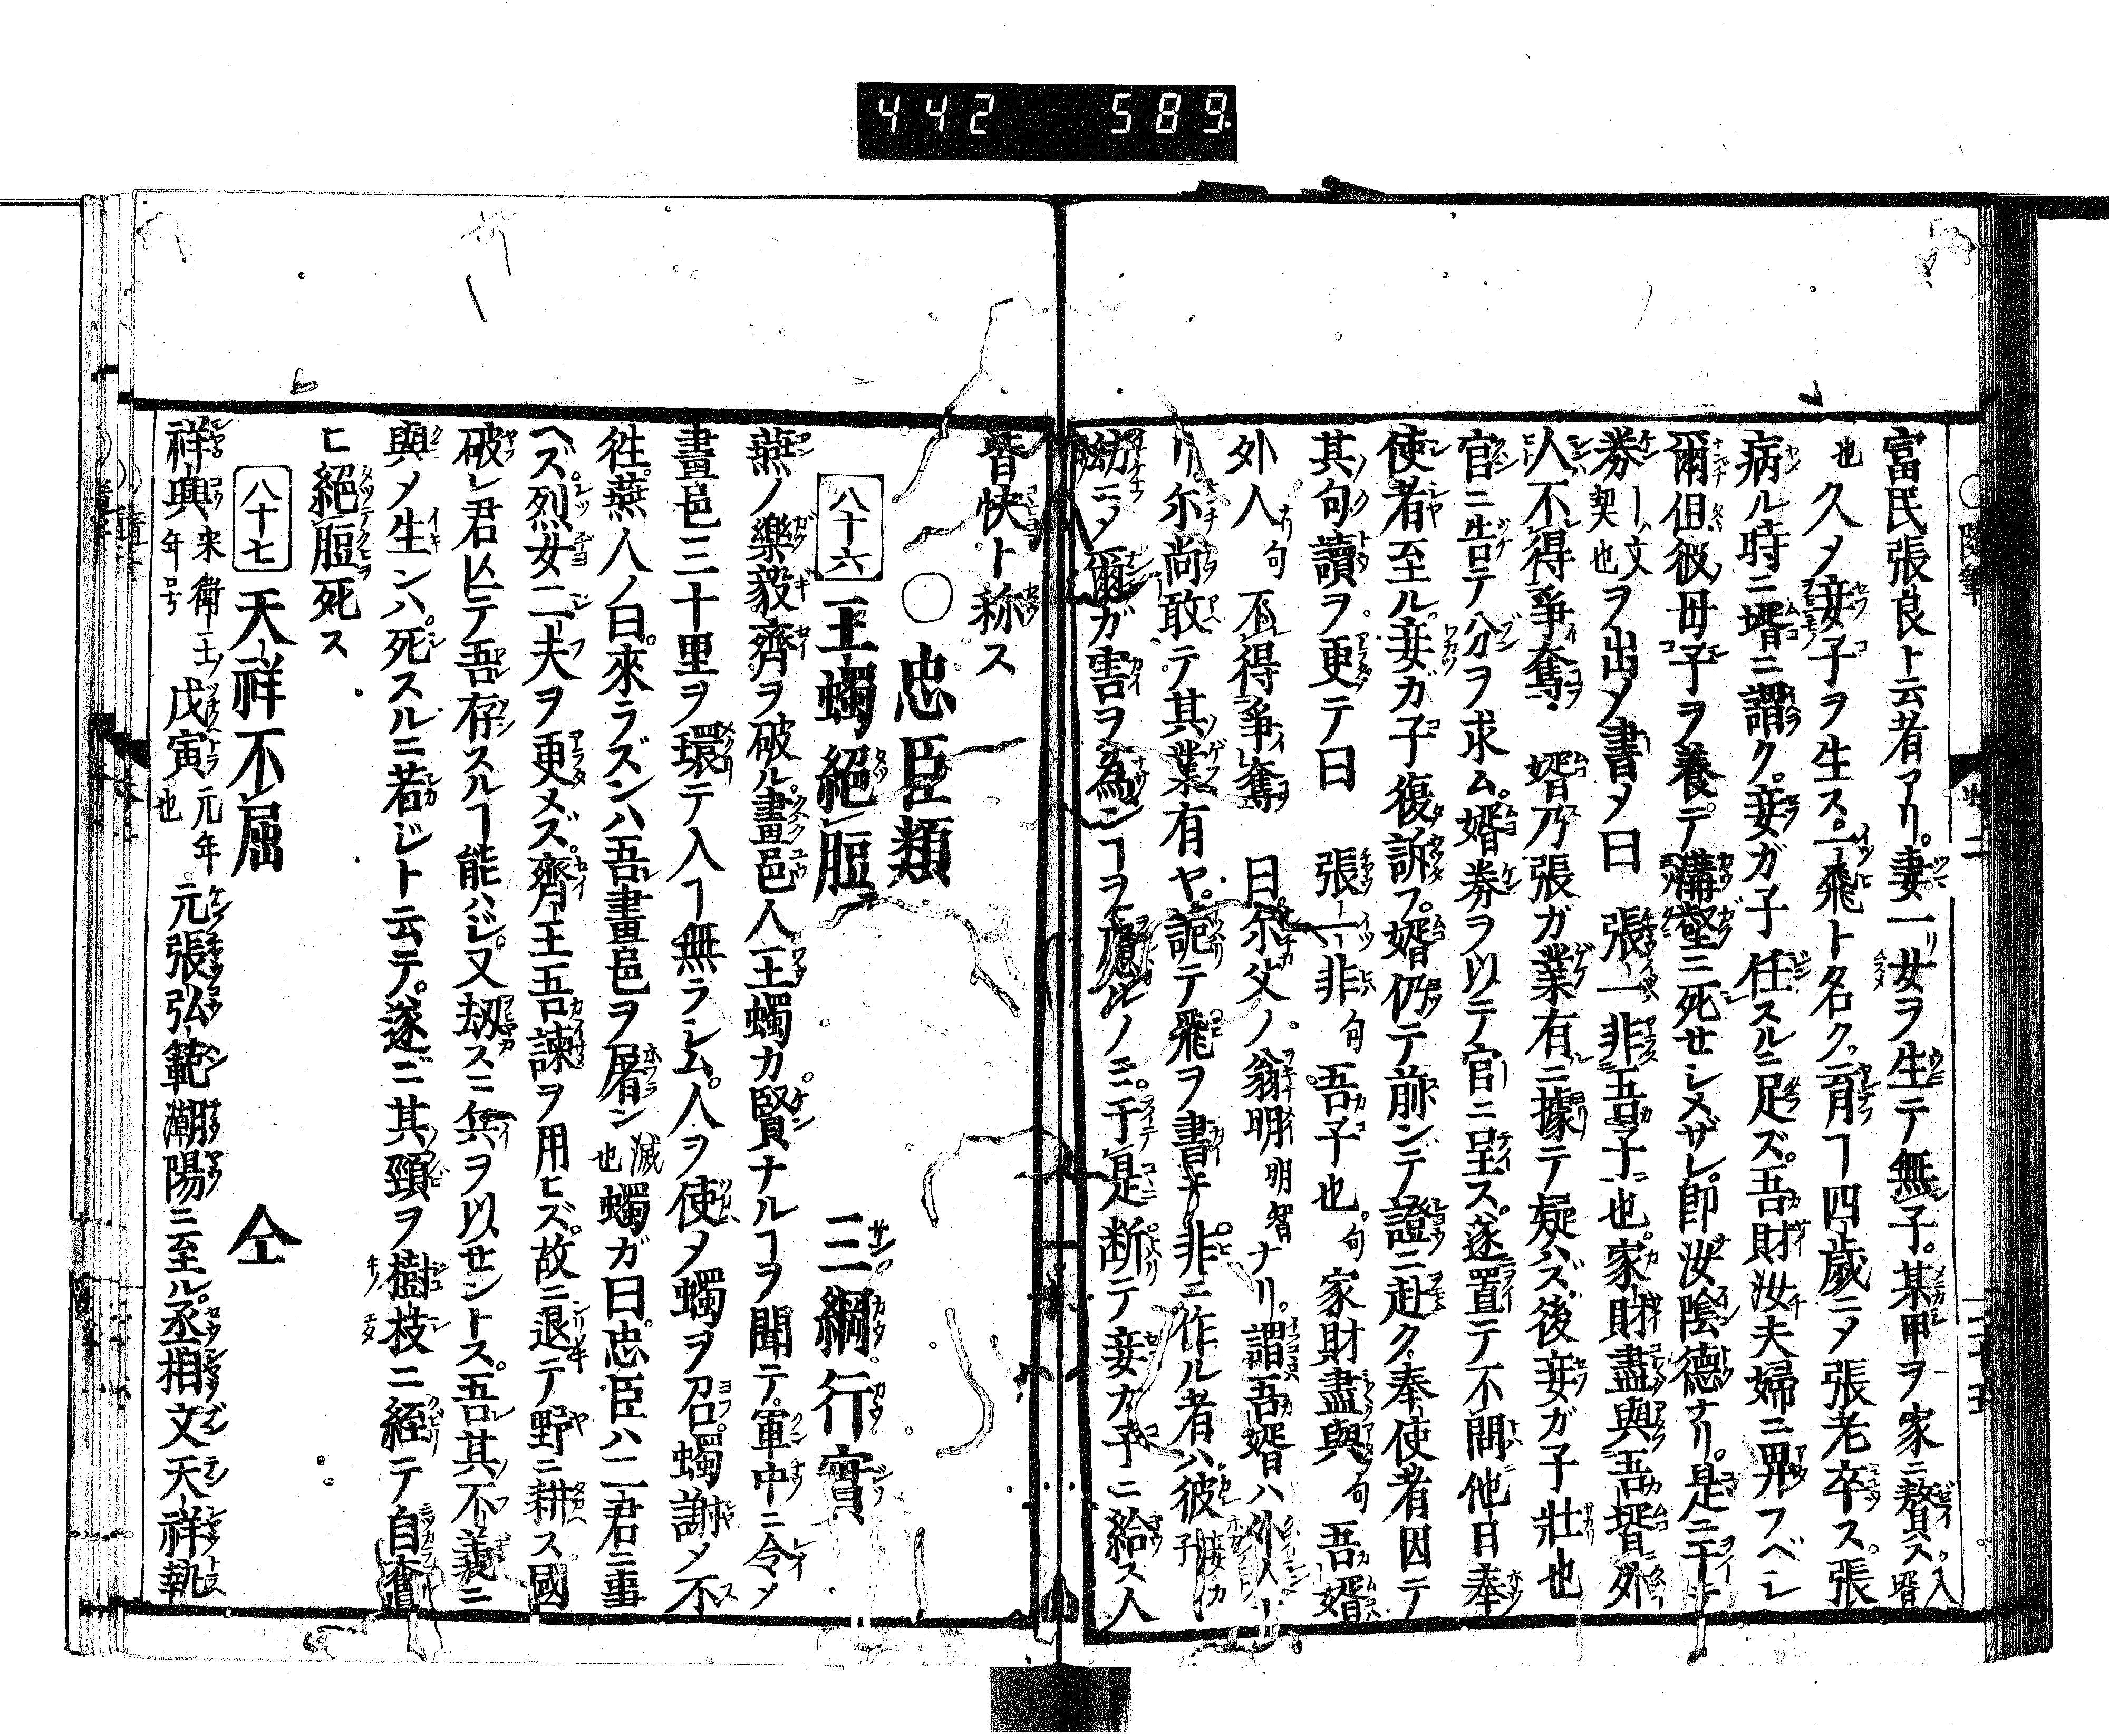 442 589
富民張良ト云者アリ。妻一女ヲ生テ無子。某甲ヲ家ニ贅ス。入壻
也久メ妾子ヲ生ス。一飛ト名ク。育ヿ四歳ニメ張老卒ス張
病ル時ニ壻ニ謂ク。妾ガ子任スルニ足ズ。吾財汝夫婦ニ畀フベシ
爾但彼母子ヲ養テ溝壑ニ死セシメザレ。即汝陰德ナリ。是ニ于
券―文契也ヲ出メ書メ曰 張一非吾子也。家財盡與吾壻外
人不得爭奪。壻乃張ガ業有ニ據テ疑ハズ。後妾ガ子壯也
官ニ告テ分ヲ求ム。婿券ヲ以テ官ニ呈ス。遂置テ不問他日奉
使者至ル。妾ガ子復訴フ。婿仍テ前ンデ證ニ赴ク。奉使者因テ
其句讀ヲ更テ曰 張一非句吾子也。句家財盡與句吾婿
外人句不得爭奪 曰尔父ノ翁明明智ナリ。謂吾婿ハ外人
リ。尔尚敢テ其業有ヤ。詭テ飛ヲ書キ非ニ作ル者ハ彼
幼ニメ爾ガ害ヲ為ンヿヲ慮ルノミ。于是断テ妾ガ子ニ給ス人
皆快ト称ス
○忠臣類
八十六 王蠋絕脰 三綱行實
燕ノ樂毅齊ヲ破ル。畫邑人王蠋カ賢ナルヿヲ聞テ。軍中ニ令メ
畫邑三十里ヲ環テ入ヿ無ラシム。人ヲ使メ蠋ヲ召。蠋謝メ不
徃。燕人ノ曰。來ラズンハ吾畫邑ヲ屠ン滅也蠋ガ曰。忠臣ハ二君ニ事
ヘズ。烈女二夫ヲ更メズ。齊王吾諫ヲ用ヒズ。故ニ退テ野ニ耕ス國
破レ君亡テ吾存スルヿ能ハジ。又劫スニ兵ヲ以セントス。吾其不義ニ
與メ生ンハ。死スルニ若ジト云テ。遂ニ其頸ヲ樹枝ニ經テ自奮
ヒ絕脰死ス
八十七 天祥不屈 仝
祥興宋衛王ノ年号戊寅元年也。元張弘範潮陽ニ至ル。丞相文天祥執